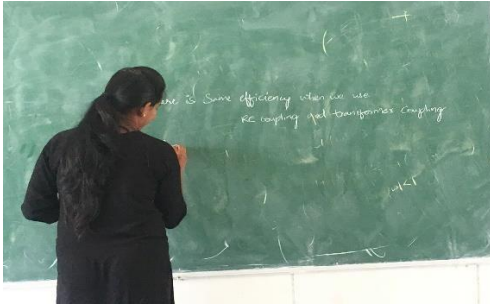 ere is Same efficiency when we use
RC coupling and transformer coupling